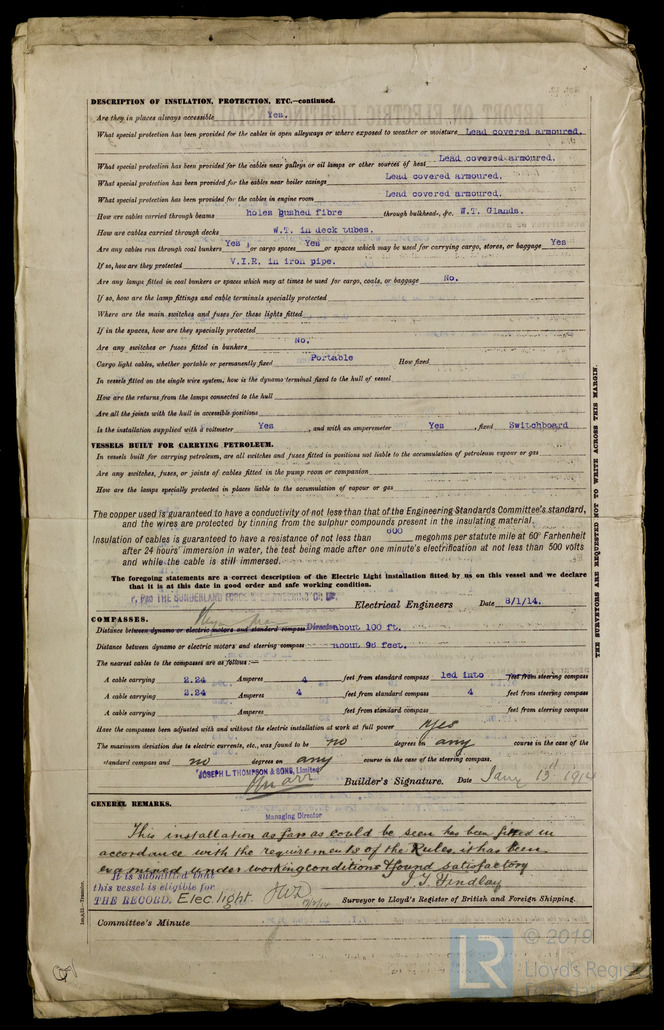 DESCRIPTION OF INSULATION, PROTECTION, ETC.—continued.
Are they in places always accessible Yes.
What special protection has been provided for the cables in open alleyways or where exposed to weather or moisture Lead covered armoured.
What special protection has been provided for the cables near galleys or oil lamps or other sources of heat Lead covered armoured.
What special protection has been provided for the cables near boiler casings Lead covered armoured.
What special protection has been provided for the cables in engine room Lead covered armoured.
How are cables carried through beams holes bushed fibre through bulkheads, &c. W.T. Glands.
How are cables carried through decks W.T. in deck tubes.
Are any cables run through coal bunkers Yes or cargo spaces Yes or spaces which may be used for carrying cargo, stores, or baggage Yes
If so, how are they protected V.I.R. in iron pipe.
Are any lamps fitted in coal bunkers or spaces which may at times be used for cargo, coals, or baggage No.
If so, how are the lamp fittings and cable terminals specially protected
Where are the main switches and fuses for these lights fitted
If in the spaces, how are they specially protected
Are any switches or fuses fitted in bunkers No.
Cargo light cables, whether portable or permanently fixed Portable How fixed
In vessels fitted on the single wire system, how is the dynamo terminal fixed to the hull of vessel
How are the returns from the lamps connected to the hull
Are all the joints with the hull in accessible positions
Is the installation supplied with a voltmeter Yes, and with an amperemeter Yes, fixed Switchboard
VESSELS BUILT FOR CARRYING PETROLEUM.
In vessels built for carrying petroleum, are all switches and fuses fitted in positions not liable to the accumulation of petroleum vapour or gas
Are any switches, fuses, or joints of cables fitted in the pump room or companion
How are the lamps specially protected in places liable to the accumulation of vapour or gas
The copper used is guaranteed to have a conductivity of not less than that of the Engineering Standards Committee's standard,
and the wires are protected by tinning from the sulphur compounds present in the insulating material.
Insulation of cables is guaranteed to have a resistance of not less than 600 megohms per statute mile at 60° Farhenheit
after 24 hours' immersion in water, the test being made after one minute's electrification at not less than 500 volts
and while the cable is still immersed.
The foregoing statements are a correct description of the Electric Light installation fitted by us on this vessel and we declare
that it is at this date in good order and safe working condition.
THE SUNDERLAND FORGE & ENGINEERING CO. LD.
Electrical Engineers Date 8/1/14.
COMPASSES.
Director
Distance between dynamo or electric motors and standard compass about 100 ft.
Distance between dynamo or electric motors and steering compass about 96 feet.
The nearest cables to the compasses are as follows:—
A cable carrying 2.24 Amperes 4 feet from standard compass led into feet from steering compass
A cable carrying 2.24 Amperes 4 feet from standard compass 4 feet from steering compass
A cable carrying Amperes feet from standard compass feet from steering compass
Have the compasses been adjusted with and without the electric installation at work at full power Yes
The maximum deviation due to electric currents, etc., was found to be no degrees on any course in the case of the
standard compass and no degrees on any course in the case of the steering compass.
JOSEPH L. THOMPSON & SONS, Limited
Builder's Signature. Date Jany 13th 1914
Managing Director
GENERAL REMARKS.
This installation as far as could be seen has been fitted in
accordance with the requirements of the Rules, it has been
examined under working conditions & found satisfactory
It is submitted that
this vessel is eligible for
THE RECORD. Elec. light.
J. T. Findlay
Surveyor to Lloyd's Register of British and Foreign Shipping.
Committee's Minute
THE SURVEYORS ARE REQUESTED NOT TO WRITE ACROSS THIS MARGIN.
LR
© 2019
Lloyd's Register
Foundation